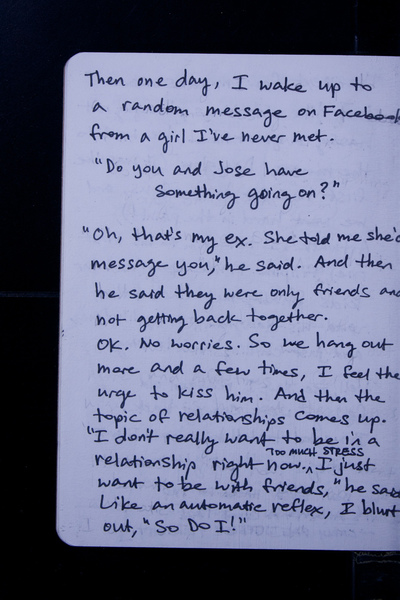 Then one day, I wake up to
a random message on Facebook
from a girl I've never met.
"Do you and Jose have
Something going on?"
"Oh, that's my ex. She told me she'd
message you," he said. And then
he said they were only friends and
not getting back together.
OK. No worries. So we hang out
more and a few times, I feel the
urge to kiss him. And then the
topic of relationships comes up.
"I don't really want to be in a
TOO MUCH STRESS
relationship right now. ^ I just
want to be with friends," he said
Like an automatic reflex, I blurt
out, "So DO I!"